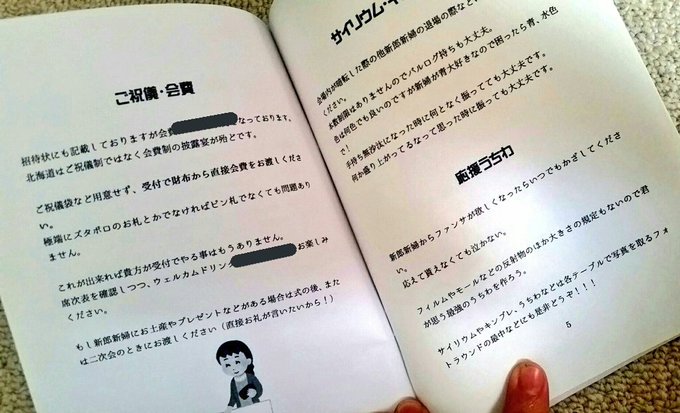 ご祝儀・会費
招待状にも記載しておりますが会費
なっております。
北海道はご祝儀制ではなく会費制の披露宴が殆どです。
ご祝儀袋など用意せず、受付で財布から直接会費をお渡しくださ
い。
極端にズタボロのお札とかでなければピン札でなくても問題あり
ません。
これが出来れば貴方が受付でやる事はもうありません。
席次表を確認しつつ、ウェルカムドリン
お楽しみ
ください。
もし新郎新婦にお土産やプレゼントなどがある場合は式の後、また
は二次会のときにお渡しください（直接お礼が言いたいから！）
サイリウム・キ
会場内が暗転した際の他新郎新婦の退場の際など
ください。
本数制限はありませんのでバルログ持ちも大丈夫。
色は何色でも良いのですが新婦が青大好きなので困ったら青、水色
で！
手持ち無沙汰になった時に何となく振ってても大丈夫です。
何か盛り上がってるなって思った時に振っても大丈夫です。
応援うちわ
新郎新婦からファンサが欲しくなったらいつでもかざしてくださ
い。
応えて貰えなくても泣かない。
フィルムやモールなどの反射物のほか大きさの規定もないので君
が思う最強のうちわを作ろう。
サイリウムやキンブレ、うちわなどは各テーブルで写真を取るフォ
トラウンドの最中などにも是非どうぞ！！！
5